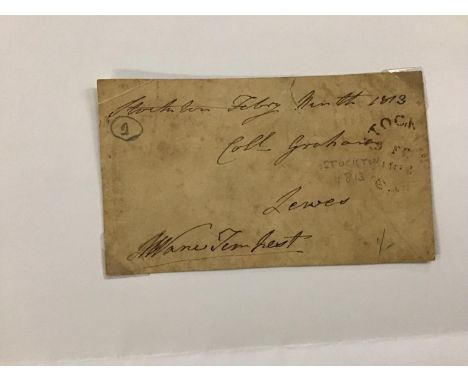 Stockton Febry Ninth 1813
2
Coll Graham
STOCK
STOCKTON
1813
Lewes
HVane Tempest